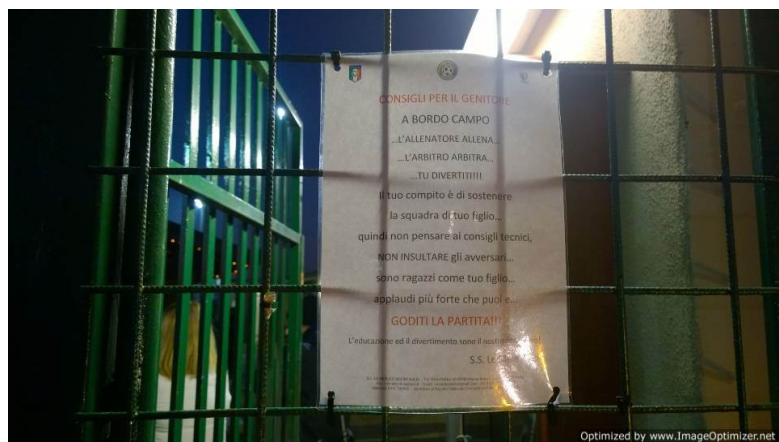 CONSIGLI PER IL GENITORE
A BORDO CAMPO
...L'ALLENATORE ALLENA...
...L'ARBITRO ARBITRA...
...TU DIVERTITI!!!
Il tuo compito è di sostenere
la squadra di tuo figlio...
quindi non pensare ai consigli tecnici,
NON INSULTARE gli avversari...
sono ragazzi come tuo figlio...
applaudi più forte che puoi e...
GODITI LA PARTITA!!!
L'educazione ed il divertimento sono il
S.S.
Optimized by www.ImageOptimizer.net